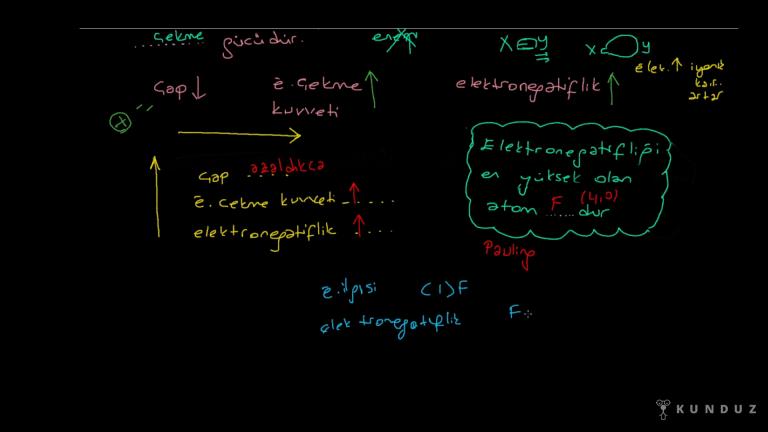 çekme gücüdür.
enerji
X Y
X Y
elek. ↑ iyonik
kar.
artar
Çap ↓
ē. çekme
kuvveti ↑
elektronegatiflik ↑
Çap azaldıkça
ē. çekme kuvveti ↑ ....
elektronegatiflik ↑ ....
Elektronegatifliği
en yüksek olan
atom F (4,0) dur
Pauling
ē. ilgisi
elektronegatiflik F
KUNDUZ